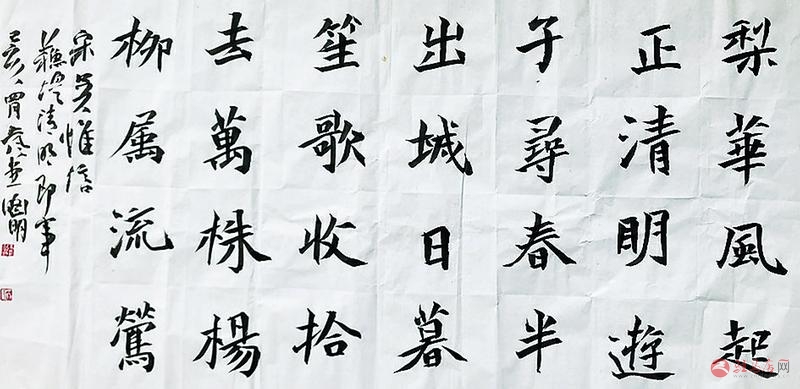 梨華風起
正清明遊
子尋春半
出城日暮
笙歌收拾
去萬株楊
柳属流鶯
宋吳惟信
蘇堤清明即事